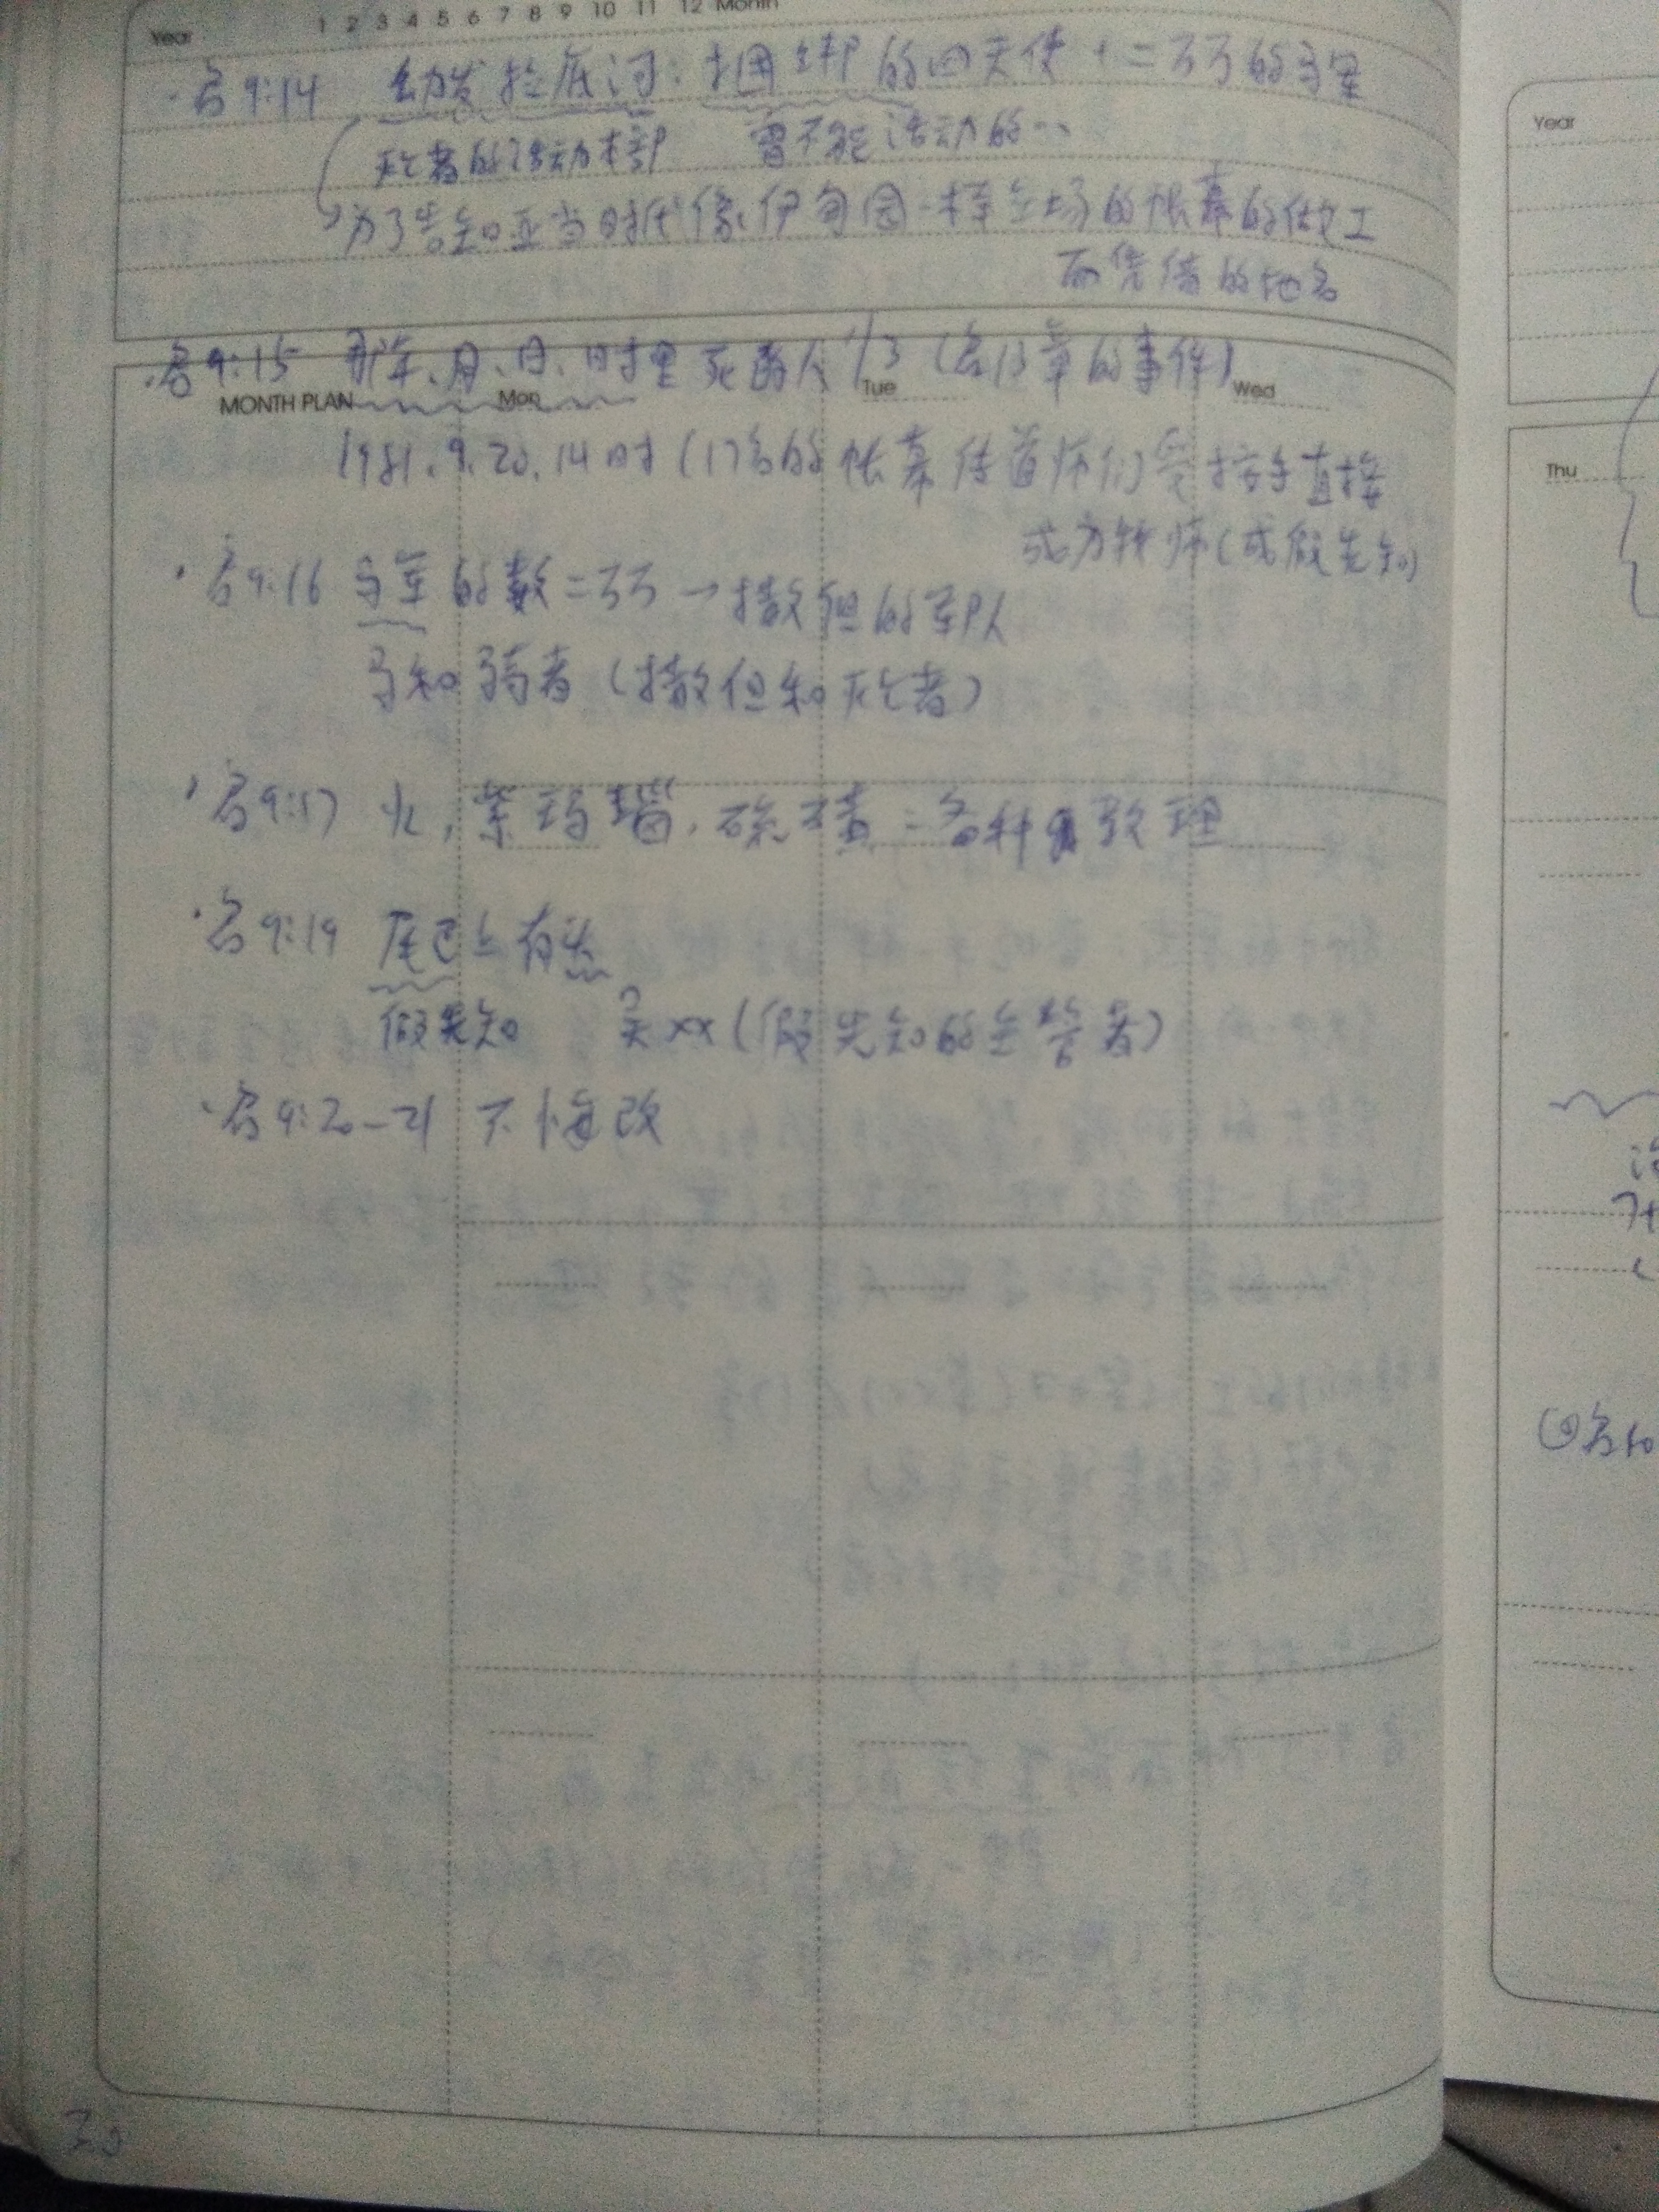 Year 1 2 3 4 5 6 7 8 9 10 11 12 Month
·启9:14 幼发拉底河:捆绑的四天使+二万万的马军
灭亡者的活动本部 曾不能活动的…
为了告知亚当时代像伊甸园一样立场的帐幕的做工
而凭借的地名
·启9:15 那年、月、日、时里死的人1/3(启13章的事件)
MONTH PLAN Mon Tue Wed
1981.9.20.14时(17名的帐幕传道师们受按手直接
成为牧师(成假先知)
·启9:16 马军的数=二万万→撒但的军队
马和骑者(撒但和灭亡者)
·启9:17 火,紫玛瑙,硫磺:各种 教理
·启9:19 尾巴上有
假先知 吴××(假先知的主管者)
·启9:20-21 不悔改
30
Year
Thu